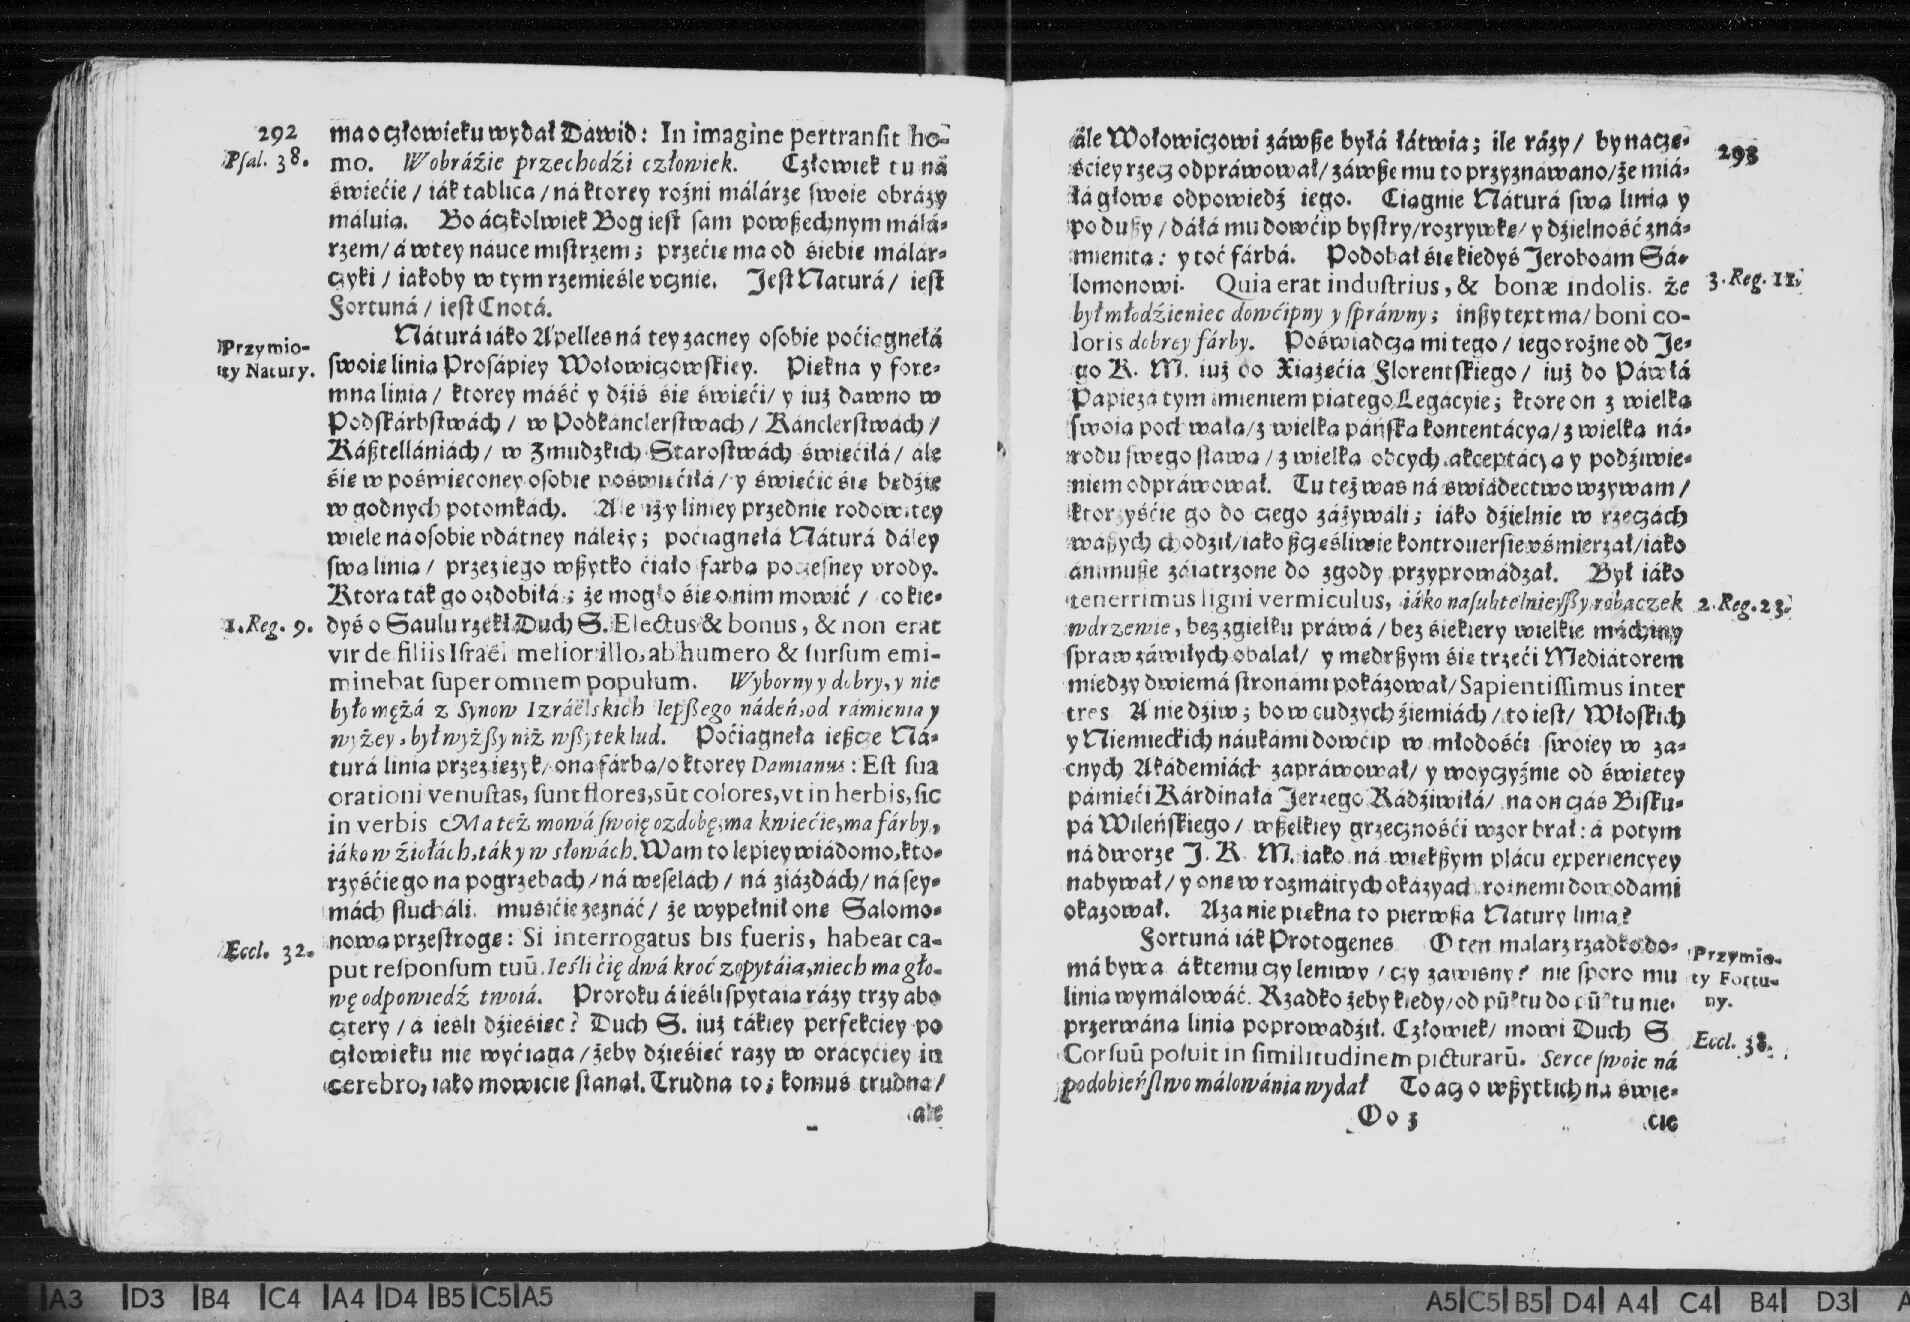 292
Psal. 38.
ma o cżłowieku wydał Dawid: In imagine pertransit ho-
mo. W obráźie przechodźi człowiek. Człowiek tu ná
świećie / iák tablica / ná ktorey rożni málárze swoie obrázy
máluią. Bo áczkolwiek Bog iest sam powßechnym málá-
rzem / á w tey náuce mistrzem; przećię ma od śiebie málar-
czyki / iakoby w tym rzemieśle vcznie. Jest Naturá / iest
Fortuná / iest Cnotá.
Przymio-
ty Natury.
Náturá iáko Apelles ná tey zacney osobie poćiągnęłá
swoię linią Prosápiey Wołowiczowskiey. Piękna y fore-
mna linia / ktorey máść y dźiś się święći / y iuż dawno w
Podskárbstwách / w Podkánclerstwach / Kánclerstwách /
Káßtellániách / w Zmudzkich Starostwách święćiłá / ale
się w poświęconey osobie poświęćiłá / y święćić się będźie
w godnych potomkách. Ale iż y liniey przednie rodowitey
wiele ná osobie vdátney náleży; poćiągnęłá Náturá dáley
swą linią / przez iego wßytko ćiáło farbą poczesney vrody.
Ktora ták go ozdobiłá; że mogło się o nim mowić / co kie-
1. Reg. 9.
dyś o Saulu rzekł Duch S. Electus & bonus, & non erat
vir de filiis Israël melior illo, ab humero & sursum emi-
minebat super omnem populum. Wyborny y dobry, y nie
było mężá z Synow Izráëlskich lepßego nádeń, od rámieniá y
wyżey, był wyżßy niż wßytek lud. Poćiągnęła ießcze Ná-
turá linią przez ięzyk / oną fárbą / o ktorey Damianus: Est sua
orationi venustas, sunt flores, sūt colores, vt in herbis, sic
in verbis Ma też mowá swoię ozdobę, ma kwiećie, ma fárby,
iáko w źiołách, ták y w słowách. Wam to lepiey wiádomo, kto-
rzyśćie go na pogrzebach / ná weselách / ná ziázdách / ná sey-
mách słucháli. muśićie zeznáć / że wypełnił onę Salomo-
nową przestrogę: Si interrogatus bis fueris, habeat ca-
Eccl. 32.
put responsum tuū. Ieśli ćię dwá kroć zápytáią, niech ma gło-
wę odpowiedź twoiá. Proroku á ieśli spytaią rázy trzy abo
cztery / á ieśli dźieśięć? Duch S. iuż tákiey perfekciey po
człowieku nie wyćiąga / żeby dźieśięć rázy w orácyiey in
cerebro, iako mowicie stanął. Trudna to; komuś trudna /
ale
293
ále Wołowiczowi záwße byłá łátwia; ile rázy / by nacżę-
śćiey rzecz odpráwował / záwße mu to przyznawano / że miá-
łá głowę odpowiedź iego. Ciągnie Náturá swą linią y
po dußy / dáłá mu dowćip bystry / rozrywkę / y dźielność zná-
mienitą: y toć fárbá. Podobał się kiedyś Jeroboam Sá-
3. Reg. 11.
lomonowi. Quia erat industrius, & bonæ indolis. że
był młodźieniec dowćipny y spráwny; inßy text ma / boni co-
loris dobrey fárby. Poświadczą mi tego / iego rożne od Je-
go K. M. iuż do Xiążęćia Florentskiego / iuż do Páwłá
Papieżá tym imieniem piątego Legácyie; ktore on z wielką
swoią pochwałą / z wielką páńską kontentácyą / z wielką ná-
rodu swego sławą / z wielką obcych akceptácyą y podźiwie-
niem odpráwował. Tu też was ná świádectwo wzywam /
ktorzyśćie go do czego záżywáli; iáko dźielnie w rzeczách
wáßych chodźił / iako ßczęśliwie kontrouersie vśmierzał / iáko
ánimußie záiątrzone do zgody przyprowádzał. Był iáko
2. Reg. 23.
tenerrimus ligni vermiculus, iáko nasubtelnieyßy robaczek
w drzewie, bez zgiełku práwá / bez śiekiery wielkie máchiny
spraw záwiłych obalał / y mędrßym się trzeći Mediátorem
między dwiemá stronámi pokázował / Sapientissimus inter
tres A nie dźiw; bo w cudzych źiemiách / to iest / Włoskich
y Niemieckich náukámi dowćip w młodośći swoiey w za-
cnych Akádemiách zapráwował / y woyczyźnie od świętey
pámięći Kárdinałá Jerzego Rádźiwiłá / na on czás Bisku-
pá Wileńskiego / wßelkiey grzecznośći wzor brał: á potym
ná dworze J. K. M. iako ná większym plácu experiencyey
nabywał / y onę w rozmáitych okázyach roznemi dowodámi
okazował. Aza nie piękna to pierwßa Natury linia?
Przymio-
ty Fortu-
ny.
Fortuná iák Protogenes O ten malarz rzadko do-
má bywa á k temu czy leniwy / czy zawisny? nie sporo mu
linią wymálowáć. Rzadko żeby kiedy / od pūktu do pūktu nie-
przerwáną linią poprowadźił. Człowiek / mowi Duch S
Eccl. 38.
Cor suū posuit in similitudinem picturarū. Serce swoie ná
podobieństwo málowánia wydał To acz o wßytkich na świe-
O o 3
cie